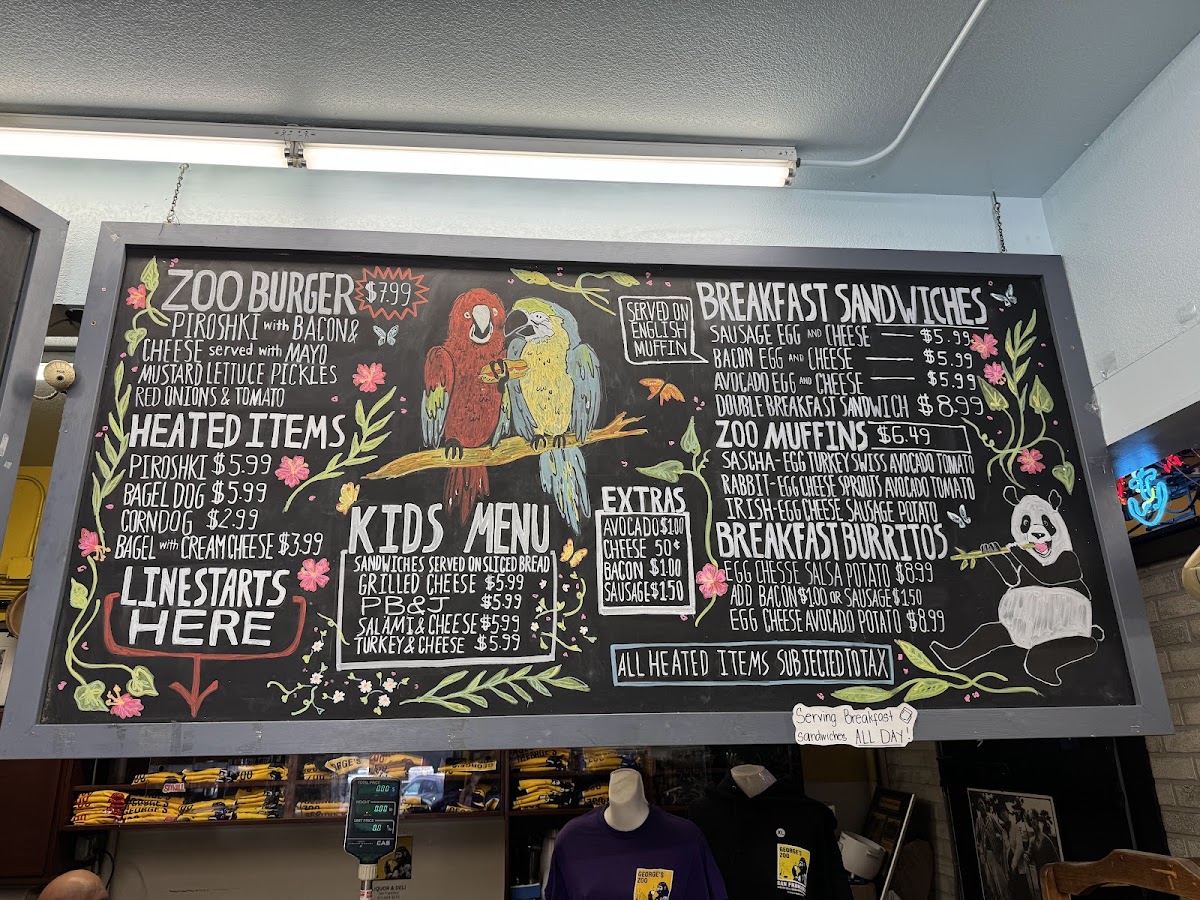 ZOO BURGER $7.99
PIROSHKI with BACON &
CHEESE served with MAYO
MUSTARD LETTUCE PICKLES
RED ONIONS & TOMATO
HEATED ITEMS
PIROSHKI $5.99
BAGEL DOG $5.99
CORNDOG $2.99
BAGEL with CREAM CHEESE $3.99
LINE STARTS
HERE
KIDS MENU
SANDWICHES SERVED ON SLICED BREAD
GRILLED CHEESE $5.99
PB&J $5.99
SALAMI & CHEESE $5.99
TURKEY & CHEESE $5.99
EXTRAS
AVOCADO $1.00
CHEESE 50¢
BACON $1.00
SAUSAGE $1.50
SERVED ON
ENGLISH
MUFFIN
BREAKFAST SANDWICHES
SAUSAGE EGG AND CHEESE — $5.99
BACON EGG AND CHEESE — $5.99
AVOCADO EGG AND CHEESE — $5.99
DOUBLE BREAKFAST SANDWICH $8.99
ZOO MUFFINS $6.49
SASCHA-EGG TURKEY SWISS AVOCADO TOMATO
RABBIT-EGG CHEESE SPROUTS AVOCADO TOMATO
IRISH-EGG CHEESE SAUSAGE POTATO
BREAKFAST BURRITOS
EGG CHESSE SALSA POTATO $8.99
ADD BACON $1.00 OR SAUSAGE $1.50
EGG CHEESE AVOCADO POTATO $8.99
ALL HEATED ITEMS SUBJECTED TO TAX
Serving Breakfast
sandwiches ALL DAY!
TOTAL PRICE
WEIGHT
UNIT PRICE
CAS
LIQUOR & DELI
GEORGE'S
ZOO
XL
GEORGE'S
ZOO
SAN FRANCISCO